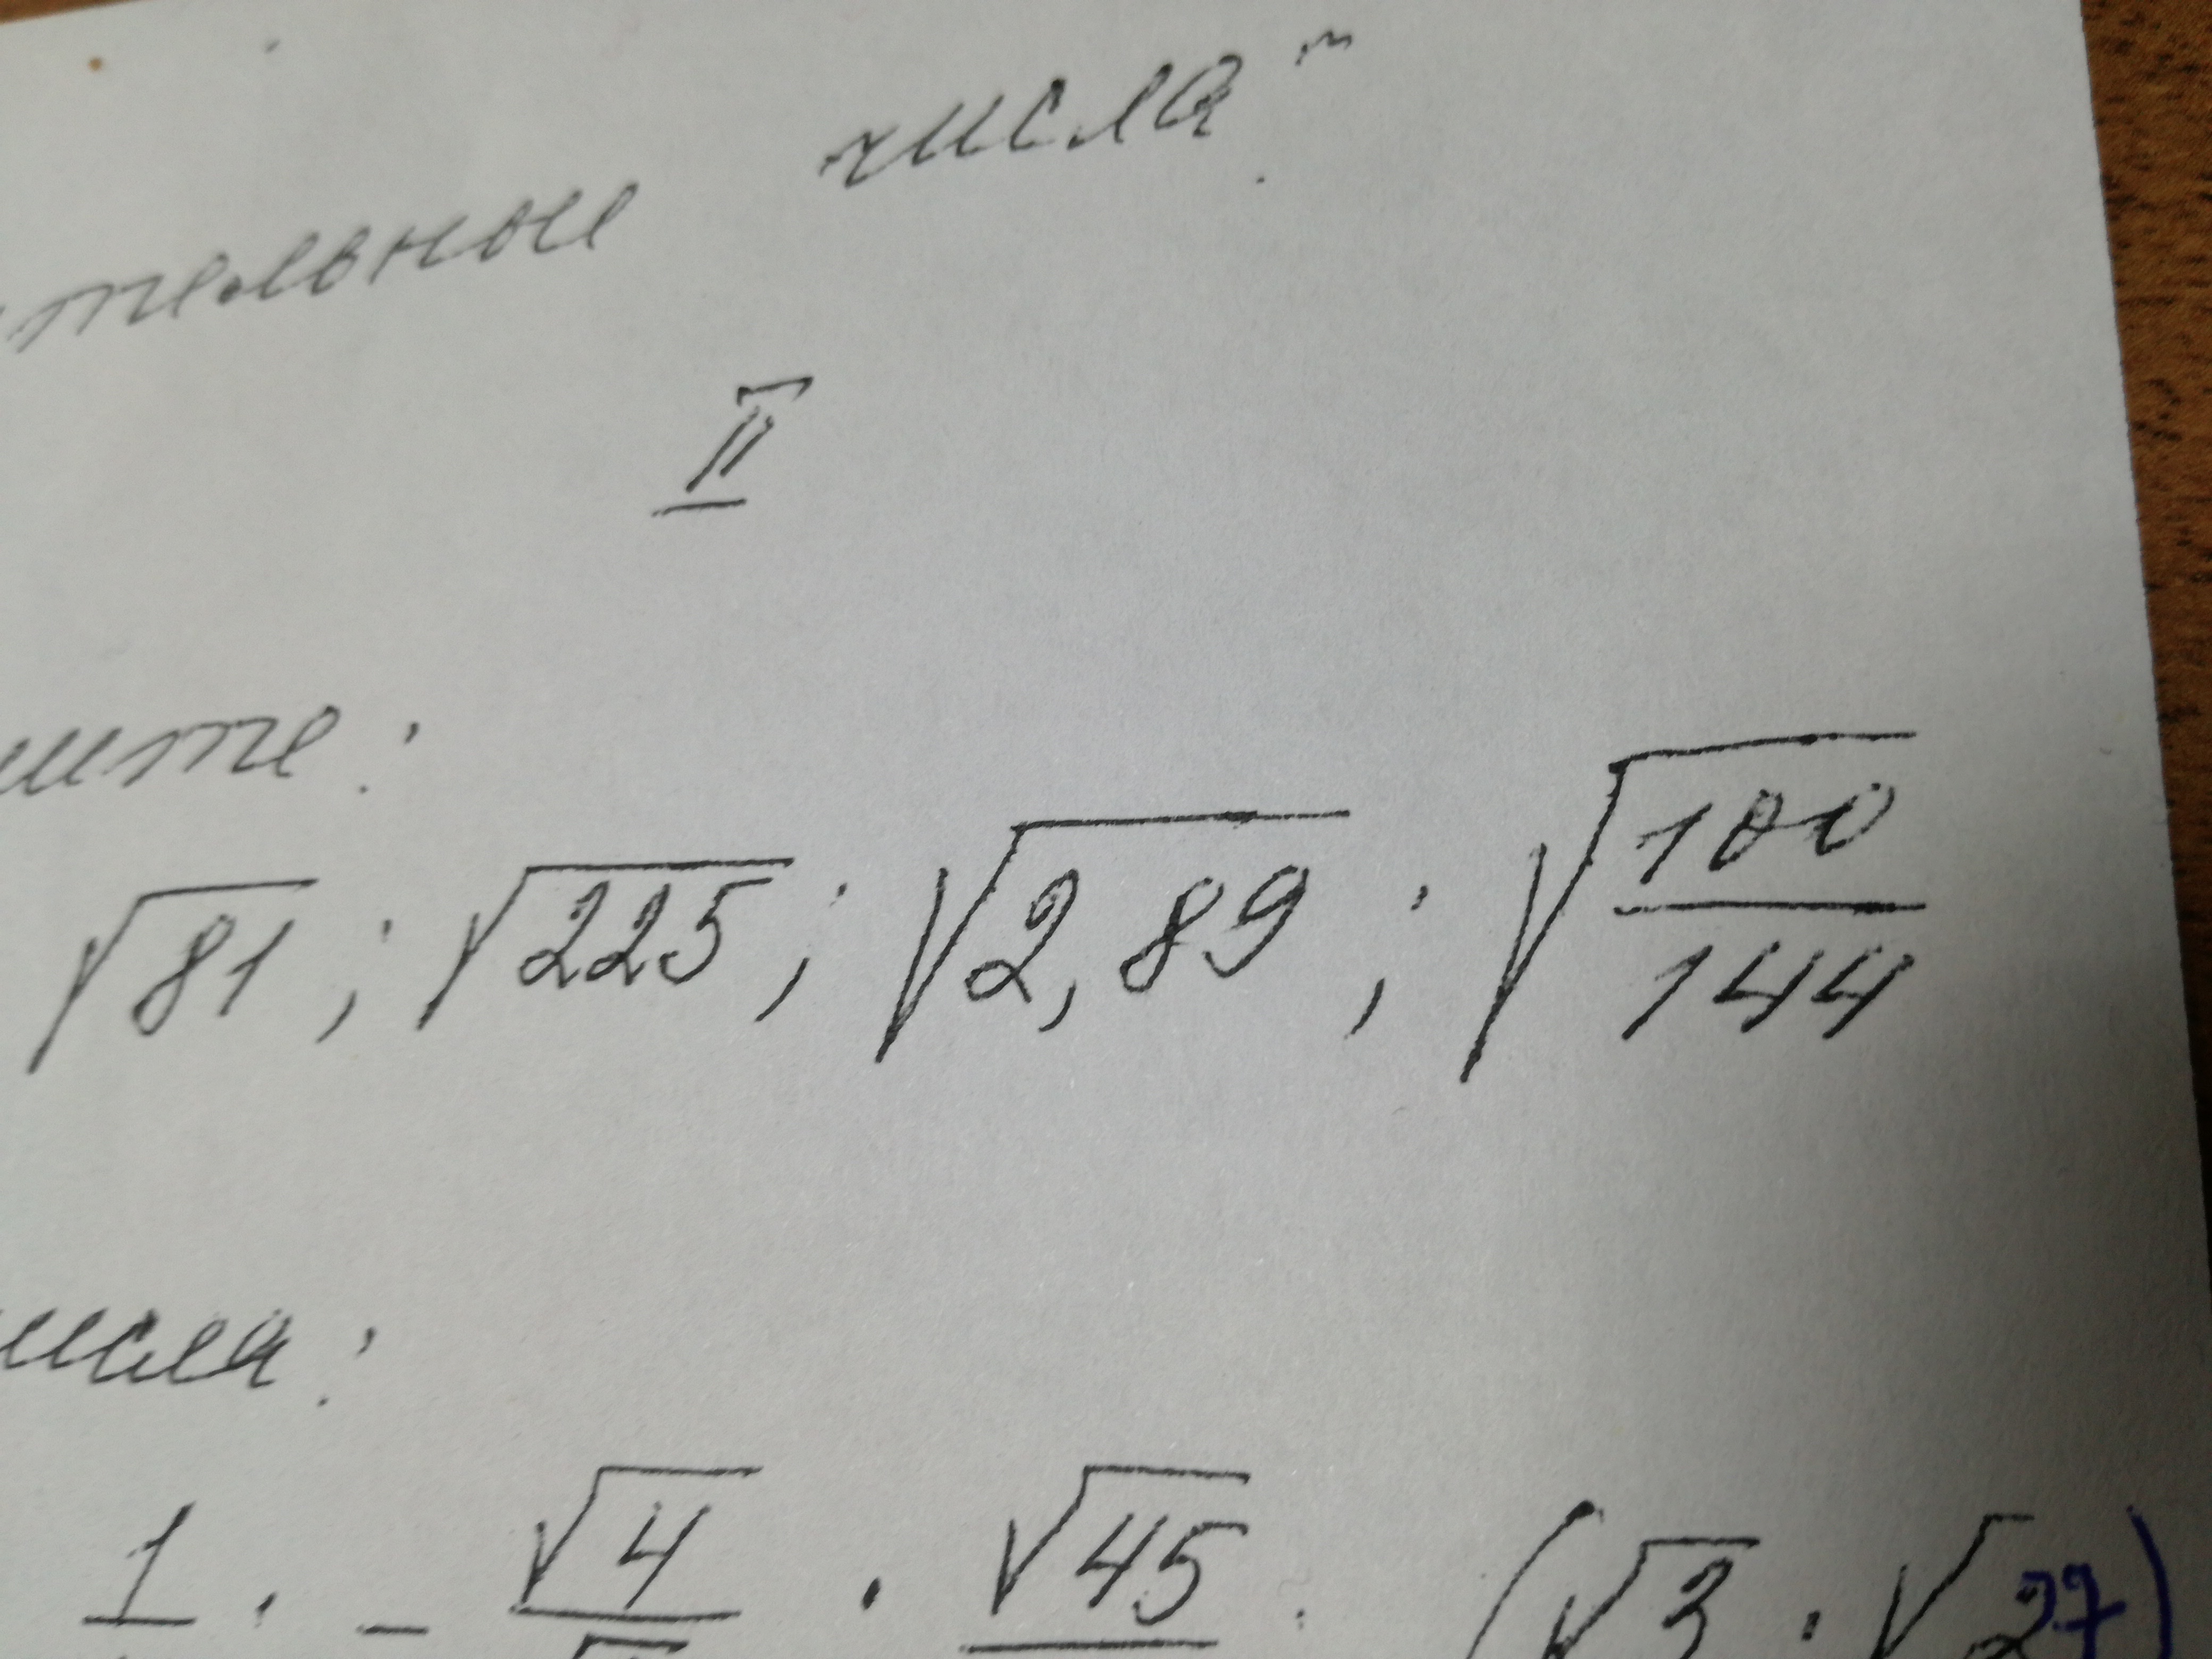 тельные числа"
II
ите:
√81; √225; √2,89; √100/144
исла:
1 ; - √4 ; √45 ; (√3 · √27)